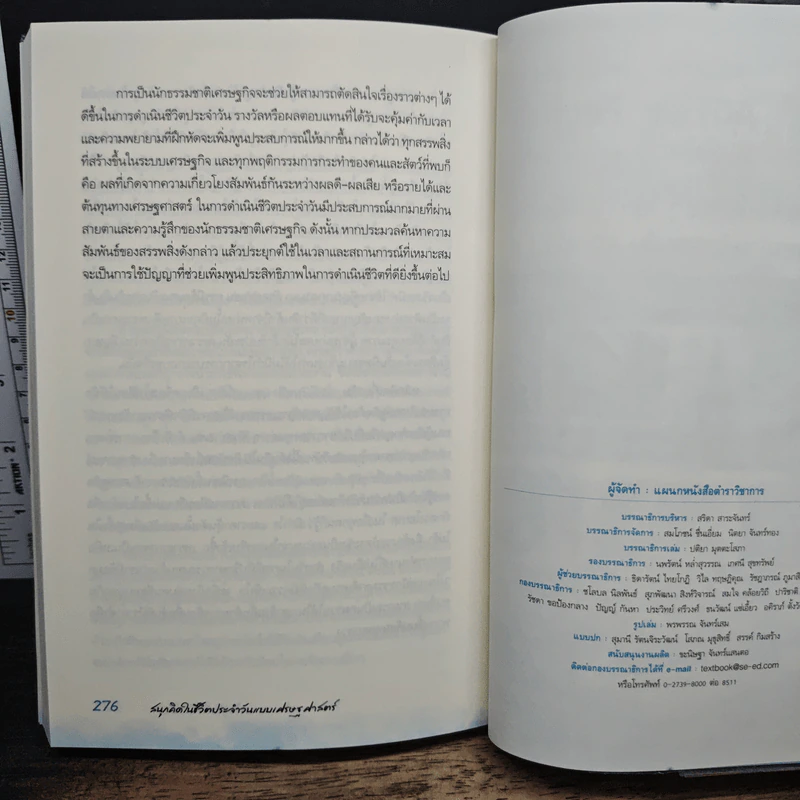 การเป็นนักธรรมชาติเศรษฐกิจจะช่วยให้สามารถตัดสินใจเรื่องราวต่างๆ ได้
ดีขึ้นในการดำเนินชีวิตประจำวัน รางวัลหรือผลตอบแทนที่ได้รับจะคุ้มค่ากับเวลา
และความพยายามที่ฝึกหัดจะเพิ่มพูนประสบการณ์ให้มากขึ้น กล่าวได้ว่า ทุกสรรพสิ่ง
ที่สร้างขึ้นในระบบเศรษฐกิจ และทุกพฤติกรรมการกระทำของคนและสัตว์ที่พบก็
คือ ผลที่เกิดจากความเกี่ยวโยงสัมพันธ์กันระหว่างผลดี-ผลเสีย หรือรายได้และ
ต้นทุนทางเศรษฐศาสตร์ ในการดำเนินชีวิตประจำวันมีประสบการณ์มากมายที่ผ่าน
สายตาและความรู้สึกของนักธรรมชาติเศรษฐกิจ ดังนั้น หากประมวลค้นหาความ
สัมพันธ์ของสรรพสิ่งดังกล่าว แล้วประยุกต์ใช้ในเวลาและสถานการณ์ที่เหมาะสม
จะเป็นการใช้ปัญญาที่ช่วยเพิ่มพูนประสิทธิภาพในการดำเนินชีวิตที่ดียิ่งขึ้นต่อไป
276 สนุกคิดในชีวิตประจำวันแบบเศรษฐศาสตร์
ผู้จัดทำ : แผนกหนังสือตำราวิชาการ
บรรณาธิการบริหาร : สริตา สาระจันทร์
บรรณาธิการจัดการ : สมโภชน์ ชื่นเอี่ยม นิตยา จันทร์ทอง
บรรณาธิการเล่ม : ปติยา มุตตะโสภา
รองบรรณาธิการ : นพรัตน์ หล่ำสุวรรณ เกศนี สุขทรัพย์
ผู้ช่วยบรรณาธิการ : ธิดารัตน์ ไทยโกฏิ วิไล ทฤษฎิคุณ รัชฎาภรณ์
กองบรรณาธิการ : ชโลบล นิลพันธ์ สุภาพัฒนา สิงห์วิจารณ์ สมใจ คล้อยวิถี ปาริชาติ
รัชดา ขอป้องกลาง ปัญญ์ กันหา ประวิทย์ ศรีวงศ์ ธนวัฒน์ แซ่เอี้ยว
รูปเล่ม : พรพรรณ จันทร์เสม
แบบปก : สุมานี รัตนจิระวัฒน์ โสภณ มุขุสิทธิ์ สรรค์ กิมสร้าง
สนับสนุนงานผลิต : ชะนิษฐา จันทร์แสนตอ
ติดต่อกองบรรณาธิการได้ที่ e-mail : textbook@se-ed.com
หรือโทรศัพท์ 0-2739-8000 ต่อ 8511
ACTION